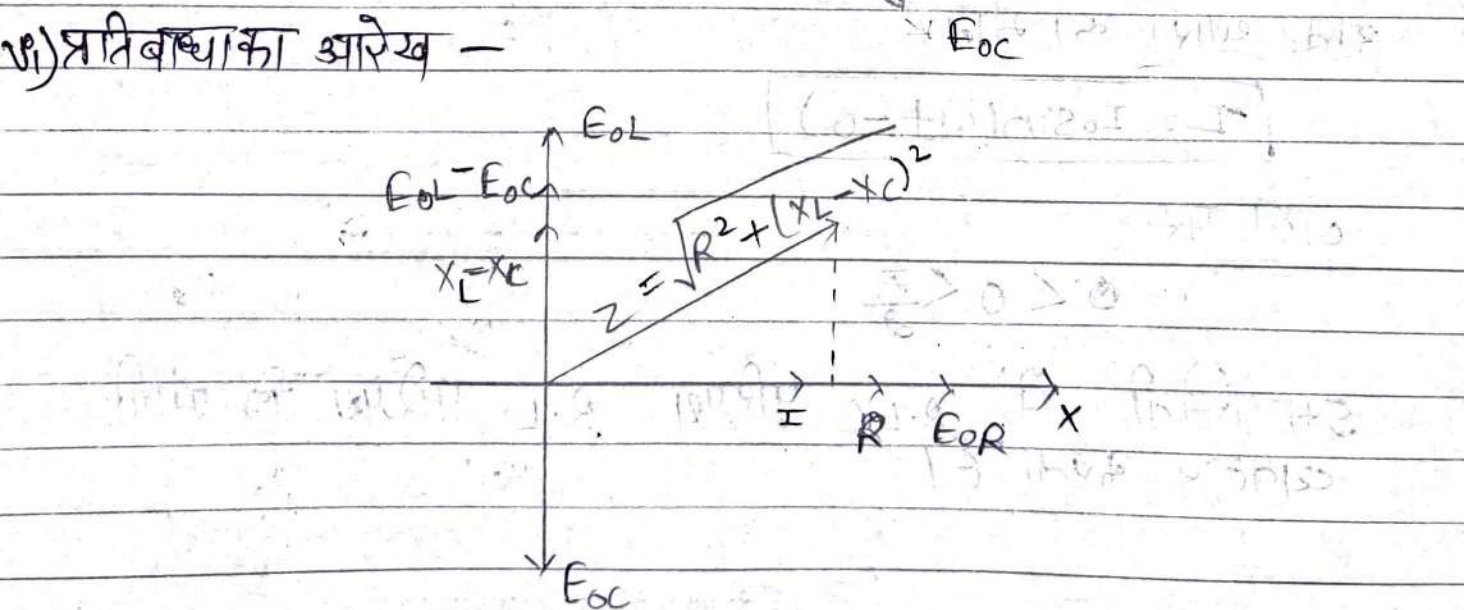 E₀C
vi) प्रतिबाधा का आरेख —
E₀L
E₀L - E₀C
X_L - X_C
Z = √R² + (X_L - X_C)²
I R E₀R X
E₀C